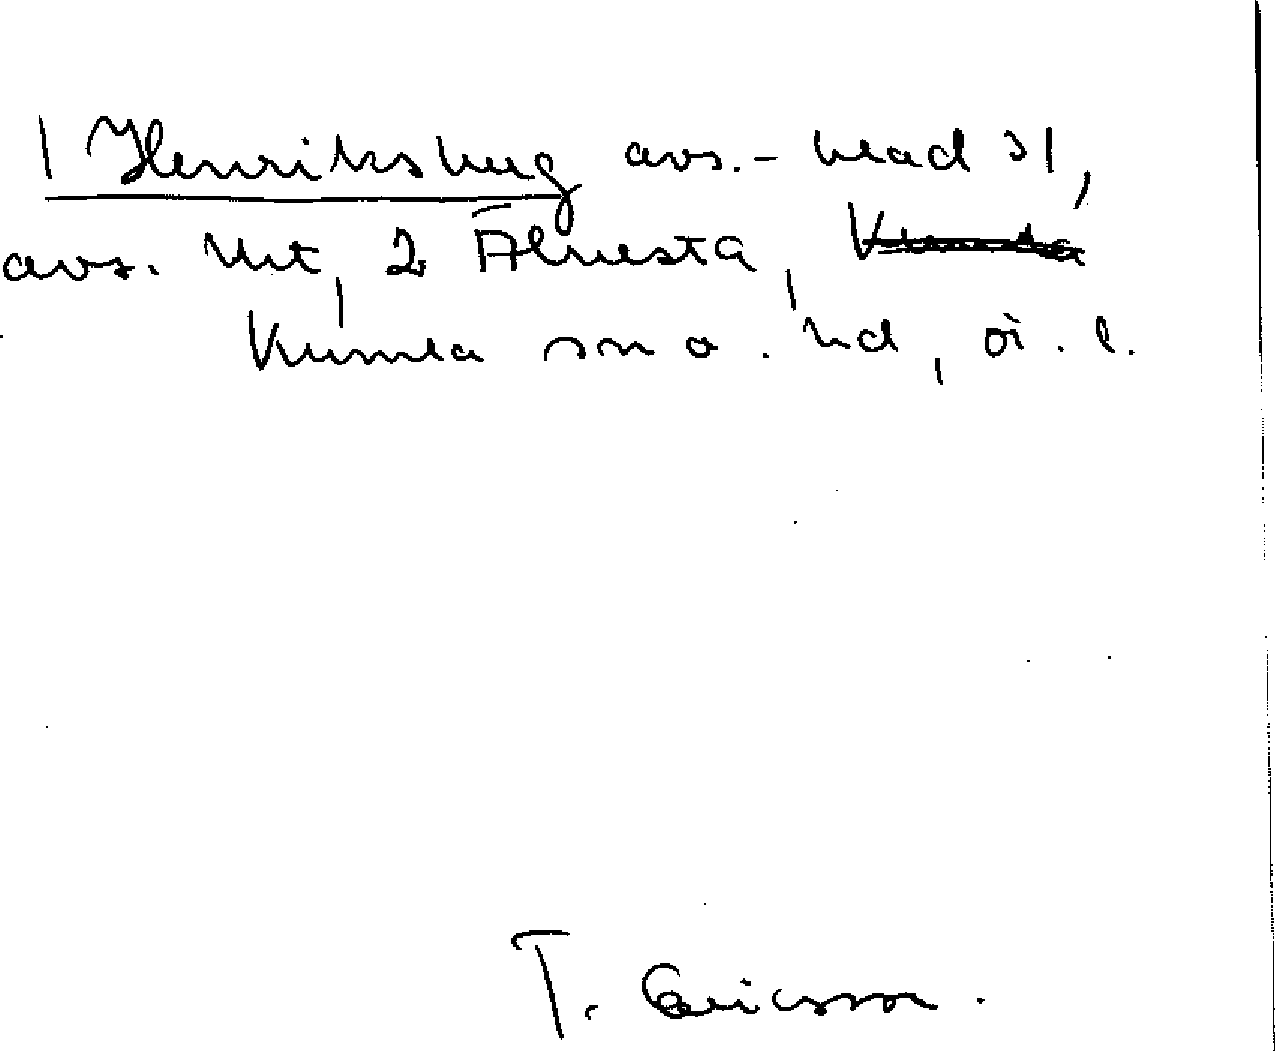 1 Henriksberg avs. - blad 31,
avs. Mt, 2 Älvesta,
Kumla sn o. hd, ö. l.
T. Ericsson.